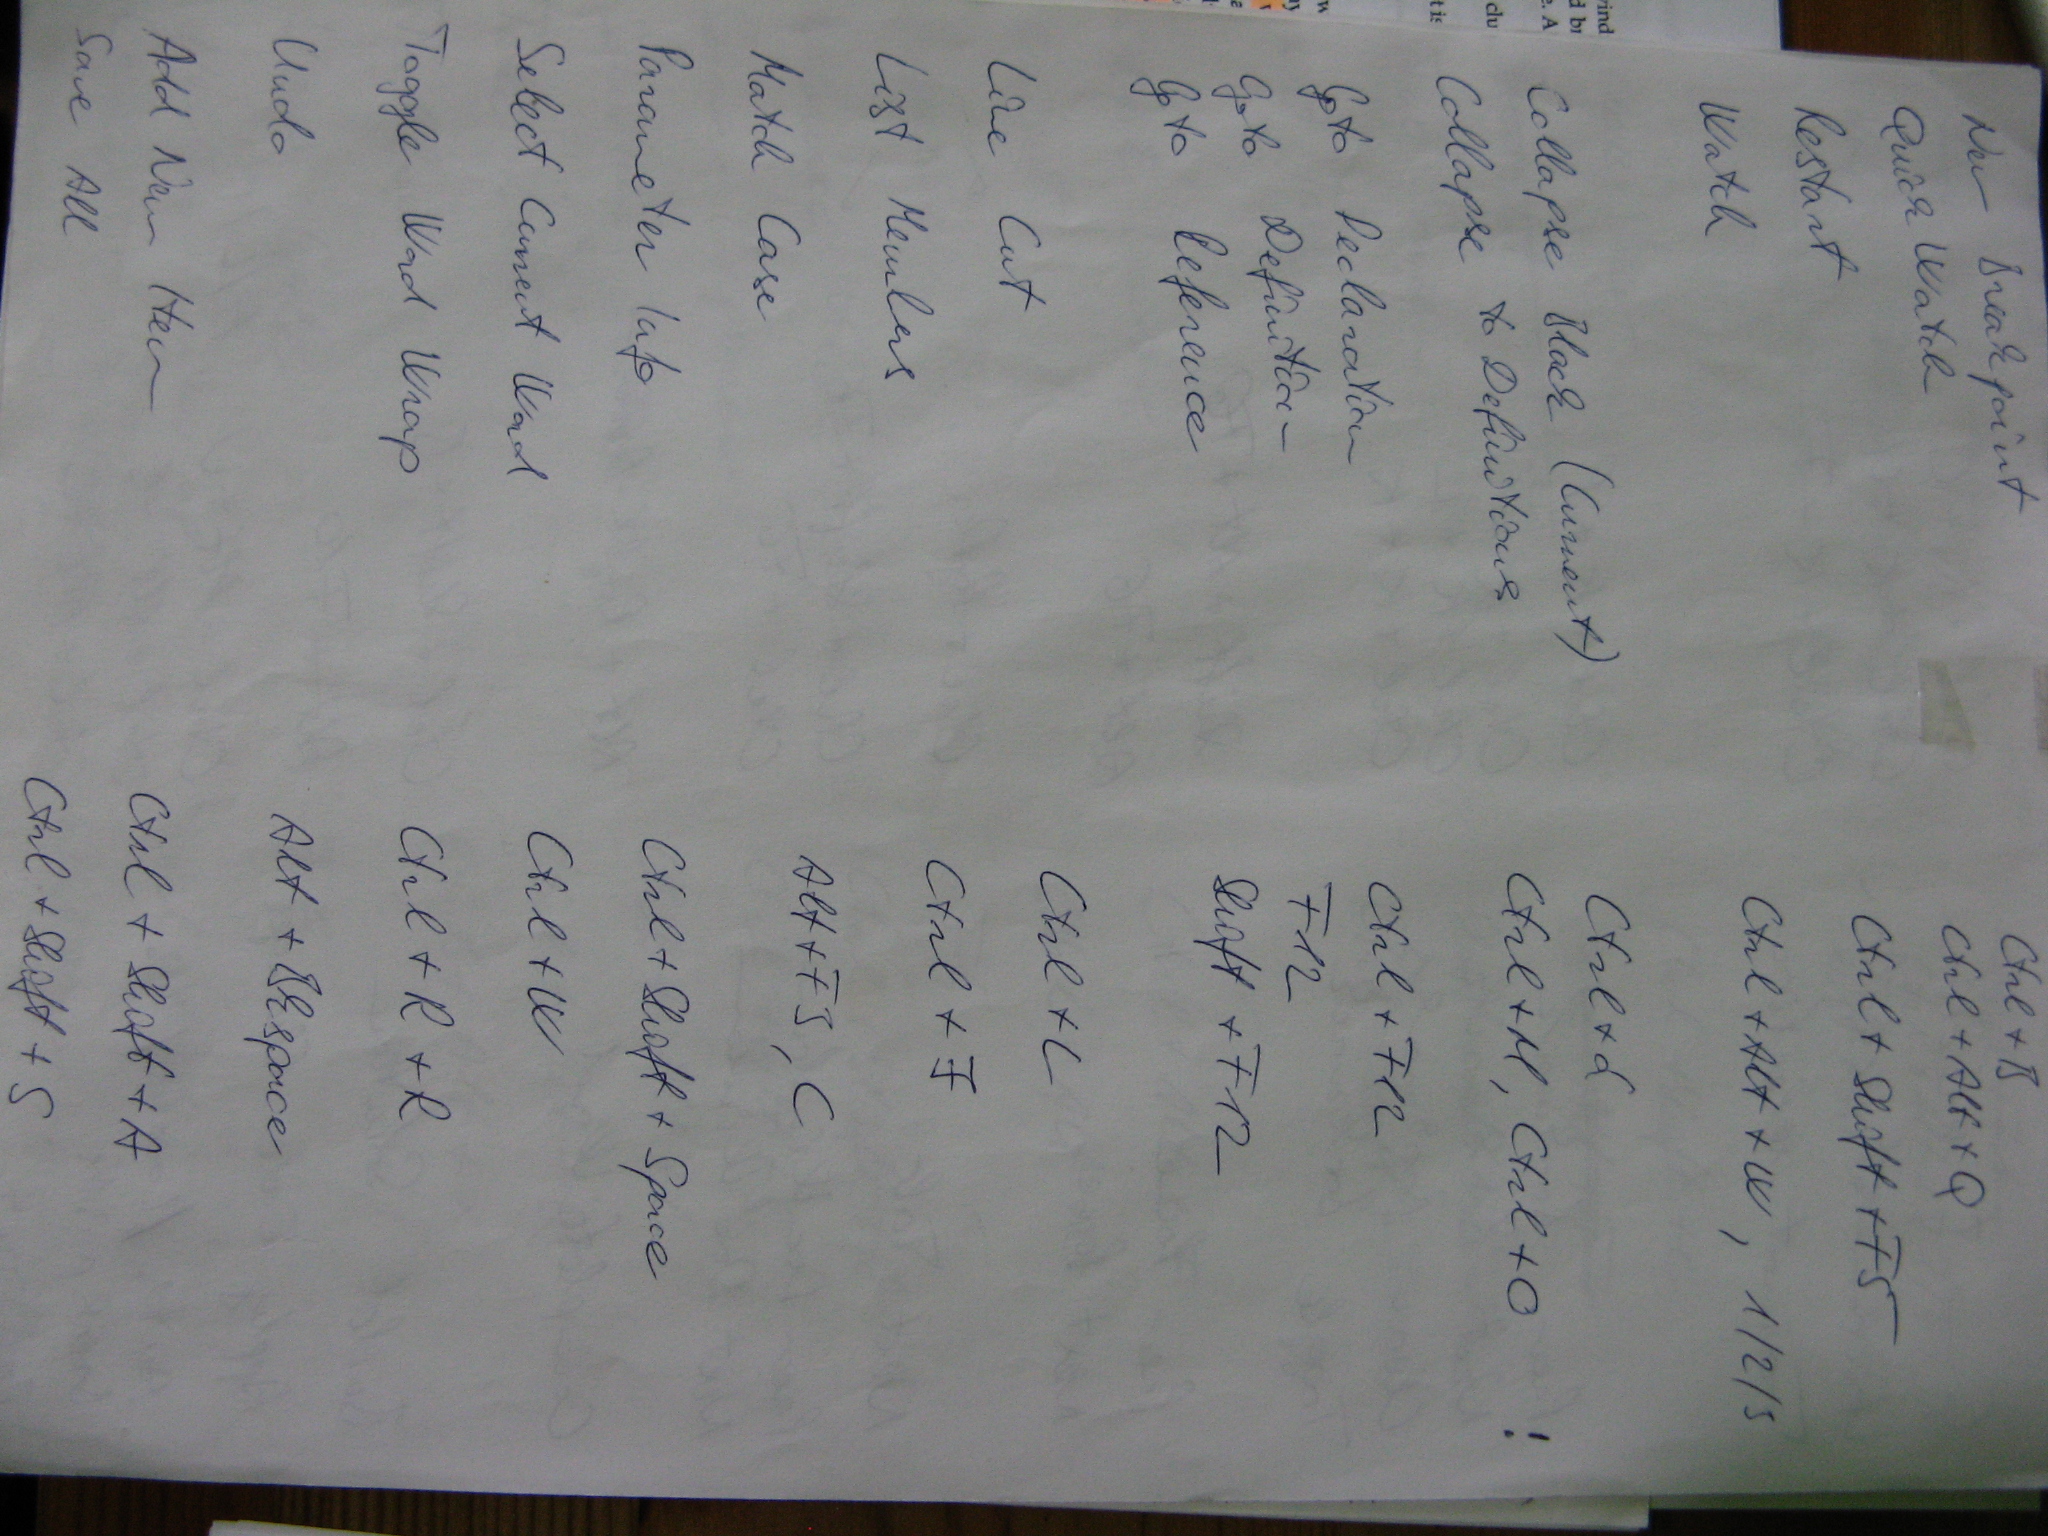 New Breakpoint Ctrl + B
Quick Watch Ctrl + Alt + Q
Restart Ctrl + Shift + F5
Watch Ctrl + Alt + W, 1/2/3
Collapse Block (Current)
Collapse to Definitions Ctrl + M, Ctrl + O !
Goto Declaration Ctrl + F12
Goto Definition F12
Goto Reference Shift + F12
Line Cut Ctrl + L
List Members Ctrl + J
Match Case Alt + F3, C
Parameter Info Ctrl + Shift + Space
Select Current Word Ctrl + W
Toggle Word Wrap Ctrl + R + R
Undo Alt + Bkspace
Add New Item Ctrl + Shift + A
Save All Ctrl + Shift + S